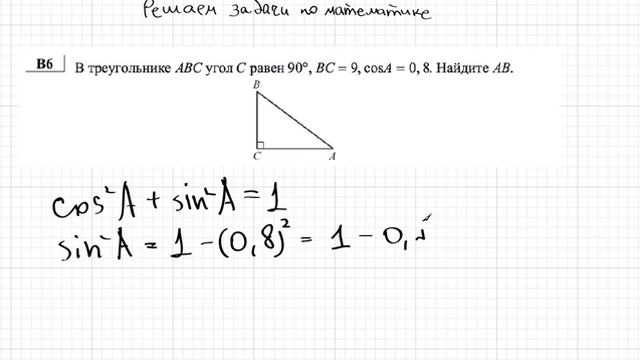 Решаем задачи по математике
B6 В треугольнике ABC угол C равен 90°, BC = 9, cosA = 0, 8. Найдите AB.
B
C A
cos²A + sin²A = 1
sin²A = 1 - (0,8)² = 1 - 0,